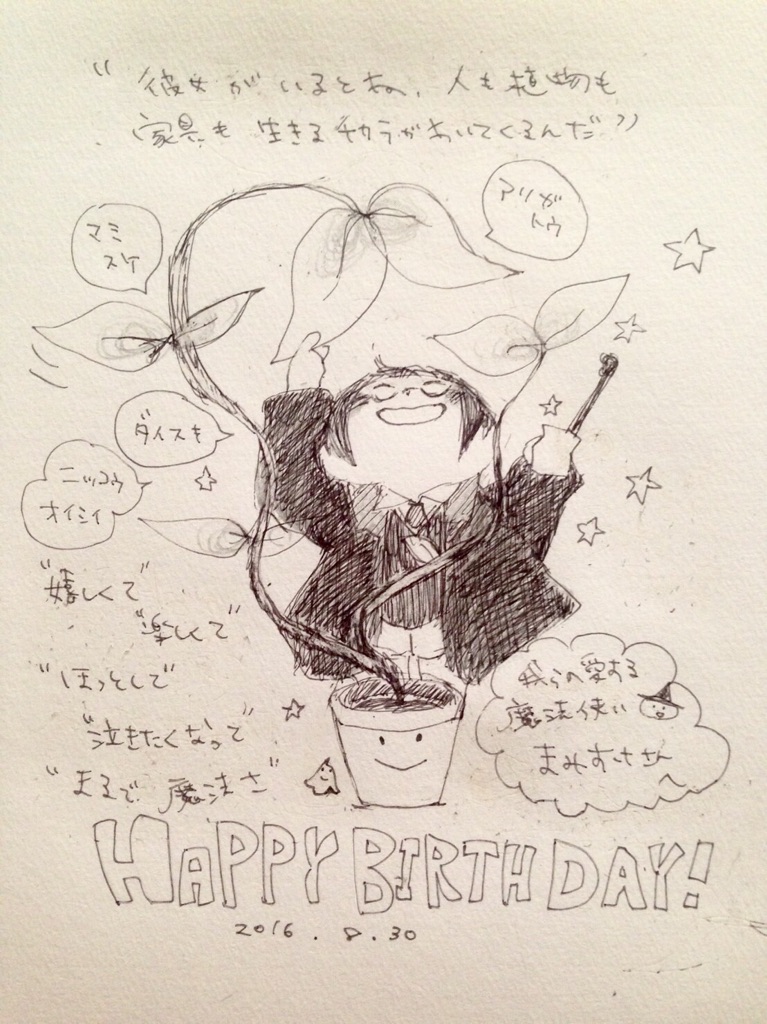 “彼女がいるとね、人も植物も
家具も生きるチカラがわいてくるんだ”
アリガ
トウ
マミ
スケ
ダイスキ
ニッコウ
オイシイ
“嬉しくて”
“楽しくて”
“ほっとして”
“泣きたくなって”
“まるで魔法さ”
我らの愛する
魔法使い
まみすけさん
HAPPY BIRTHDAY!
2016.8.30